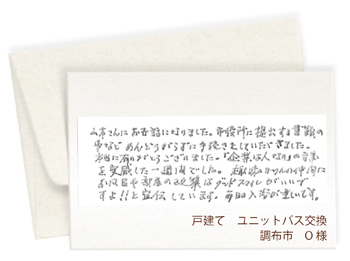 山本さんにお世話になりました。市役所に提出する書類の
事などめんどうがらずに手続きをしていただきました。
本当に有りがとうございました。「企業は人なり」の言葉
を実感した一週間でした。趣味の仲間に
お風呂や部屋の改築はグッドスマイルがいいで
すよ!!と宣伝しています。毎日入浴が楽しいです。
戸建て ユニットバス交換
調布市 O様